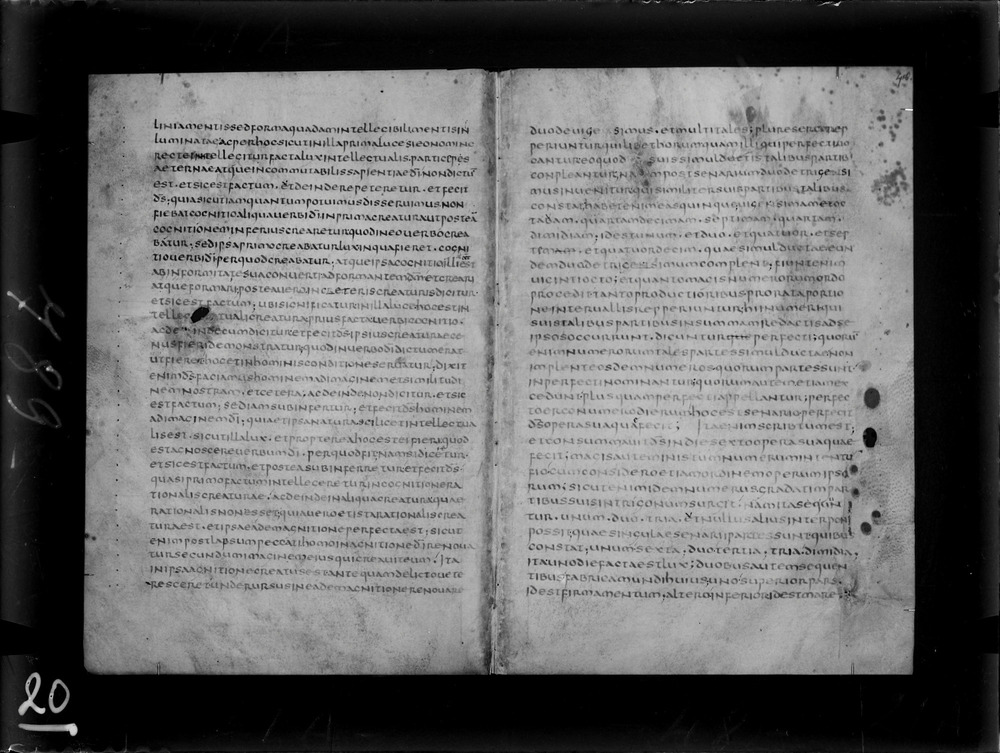 liniamentissedformaquadamintellecibilimentisin
luminataeacperhocsicutinillaprimalucesieonominc
recteintellecituffactaluxintellectualisparticeps
aeternaeatqueincommutabilissapientiaedinondictu
est·etsicestfactum·etdeinderepeteretur·etfecit
ds;quiasicutiamquantumpotuimusdisseruimusnon
fiebatcognitioaliquaverbidiinprimacreaturautpostea
cognitionemInferiuscreareturquodineoverbocrea
batur;sedipsaprimocreabaturluxinquafieret·cogni
tioverbidiperquodcreabatur;atqueipsacognitioilliest
abinformitatesuaconvertiadformantemdmetcreari
atqueformaripostea
etsicestfactum;ubisignificaturinillalucehocestin
intellectualicreaturapriusfactaverbicognitio·
acdeindecumdicituretfecitdsipsiuscreaturaege
nusfieridemonstraturquodinverbodidictumerat
utfierethocetinhominisconditioneservatur;dixit
enimdsfaciamushominemadimaginemetsimilitudi
nemnostram·etcetera;acdeindenondicitur·etsic
estfactum;sediamsubinfertur;etfecitdshominem
adimaginemdi;quiaetipsanaturascilicetintellectua
lisest·sicutillalux·etpropterea hocesteifieriquod
estagnoscereverbumdi·perquodfit;namsidiceretur·
etsicestfactum·etposteasubinferreturetfecitds·
quasiprimofactumintellegereturincognitionera
tionaliscreaturae·acdeindeinaliquacreaturaquae
rationalisnonesset;quiaveroetistarationaliscrea
turaest·etipsaeademagnitioneperfectaest;sicut
enimpostlapsumpeccatihomoinagnitionedirenova
tursecundumimaginemeiusquicreaviteum·Ita
inipsaagnitionecreatusestantequamdelictovete
resceretunderursusineademagnitionerenovare
46
duodevicensimus·etmultitales;pluresergorep
periunturquilibethorumquamilliquiperfectivo
cantureoquod suissimuldetistalibuspartib
conpleantur;nampostsenariumduodetricensi
musinveniturquisimilitersuispartibustalibus
constat;habetenimeasquinque
tadam·quartamdecimam·septimam·quartam·
dimidiam;idestunum·etduo·etquattuor·etsep
tem·etquattuordecim;quaesimulductaeeun
demduodetricensimumcomplent;fiuntenim
vigintiocto;etquantomagisnumerorumordo
procedittantoproductioribusprorataportio
neintervallisrepperiunturhinumeriqui
suistalibuspartibusinsummamredactisadse
ipsosoccurrunt·dicunturperfecti;quoru
enimnumerorumtalespartessimulductaenon
implenteosdemnumerosquorumpartessunt
inperfectinominantur;quorumautemetiamex
cedunt;plusquamperfectiappellantur;perfec
toergonumerodierumhocestsenarioperfecit
dsoperasuaquaefecit; Itaenimscribtumest;
etconsummavitdsindiesextooperasuaquae
fecit;magisautemistumnumerumintentu
fiocumconsideroetiamordinemoperumipso
rum;sicutenimidemnumerusgradatimpar
tibussuisintrigonumsurgit·namitasequn
tur·unum·duo·tria·utnulliusaliusinterponi
possitquaesingulaesenariipartessuntequibus
constat;unumsexta·duotertia·triadimidia;
itaunodiefactaestlux;duobusautemsequen
tibusfabricamundihuius;unosuperiorpars·
idestfirmamentum;alteroinferioridestmare·
489
20